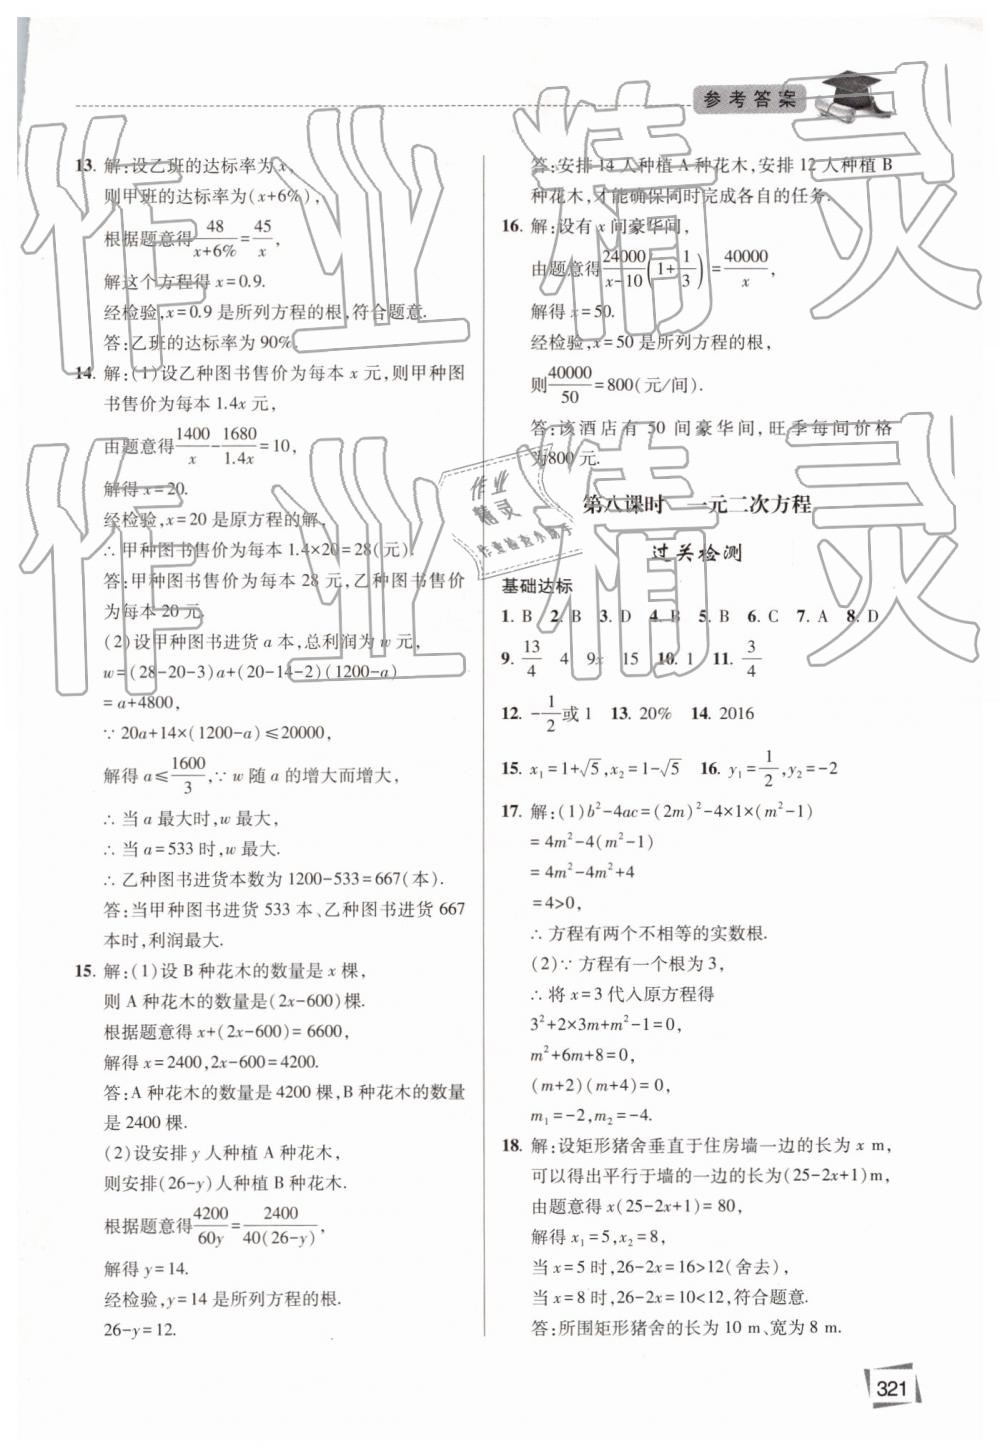 参考答案
13. 解:设乙班的达标率为 x,
则甲班的达标率为(x+6%),
根据题意得48/(x+6%)=45/x,
解这个方程得 x=0.9.
经检验,x=0.9 是所列方程的根,符合题意.
答:乙班的达标率为 90%.
14. 解:(1)设乙种图书售价为每本 x 元,则甲种图
书售价为每本 1.4x 元,
由题意得1400/x-1680/1.4x=10,
解得 x=20.
经检验,x=20 是原方程的解.
∴ 甲种图书售价为每本 1.4×20=28(元).
答:甲种图书售价为每本 28 元,乙种图书售价
为每本 20 元.
(2)设甲种图书进货 a 本,总利润为 w 元,
w=(28-20-3)a+(20-14-2)(1200-a)
=a+4800,
∵ 20a+14×(1200-a)≤20000,
解得 a≤1600/3,∵ w 随 a 的增大而增大,
∴ 当 a 最大时,w 最大,
∴ 当 a=533 时,w 最大.
∴ 乙种图书进货本数为 1200-533=667(本).
答:当甲种图书进货 533 本、乙种图书进货 667
本时,利润最大.
15. 解:(1)设 B 种花木的数量是 x 棵,
则 A 种花木的数量是(2x-600)棵.
根据题意得 x+(2x-600)=6600,
解得 x=2400,2x-600=4200.
答:A 种花木的数量是 4200 棵,B 种花木的数量
是 2400 棵.
(2)设安排 y 人种植 A 种花木,
则安排(26-y)人种植 B 种花木.
根据题意得4200/60y=2400/40(26-y),
解得 y=14.
经检验,y=14 是所列方程的根.
26-y=12.
答:安排 14 人种植 A 种花木,安排 12 人种植 B
种花木,才能确保同时完成各自的任务.
16. 解:设有 x 间豪华间,
由题意得24000/(x-10)(1+1/3)=40000/x,
解得 x=50.
经检验,x=50 是所列方程的根,
则40000/50=800(元/间).
答:该酒店有 50 间豪华间,旺季每间价格
为800 元.
第八课时 一元二次方程
过关检测
基础达标
1. B 2. B 3. D 4. B 5. B 6. C 7. A 8. D
9. 13/4 4 9x 15 10. 1 11. 3/4
12. -1/2或 1 13. 20% 14. 2016
15. x₁=1+√5,x₂=1-√5 16. y₁=1/2,y₂=-2
17. 解:(1)b²-4ac=(2m)²-4×1×(m²-1)
=4m²-4(m²-1)
=4m²-4m²+4
=4>0,
∴ 方程有两个不相等的实数根.
(2)∵ 方程有一个根为 3,
∴ 将 x=3 代入原方程得
3²+2×3m+m²-1=0,
m²+6m+8=0,
(m+2)(m+4)=0,
m₁=-2,m₂=-4.
18. 解:设矩形猪舍垂直于住房墙一边的长为 x m,
可以得出平行于墙的一边的长为(25-2x+1)m,
由题意得 x(25-2x+1)=80,
解得 x₁=5,x₂=8,
当 x=5 时,26-2x=16>12(舍去),
当 x=8 时,26-2x=10<12,符合题意.
答:所围矩形猪舍的长为 10 m、宽为 8 m.
321
作业精灵
作业精灵
作业
精灵
作业检查小助手